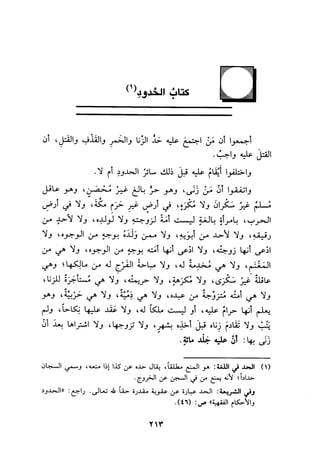 كتاب الحدود (١)
أجمعوا أن مَنْ اجتمعَ عليه حَدُّ الزِّنا والخَمرِ والقَذْفِ والقَتْلِ، أن
القتلَ عليه واجبٌ.
واختلفوا أيُقَامُ عليه قبلَ ذلك سائرُ الحدودِ أم لا.
واتفقوا أنَّ مَنْ زَنَى، وهو حرٌّ بالغٌ غيرُ مُحْصَنٍ، وهو عاقلٌ
مُسلمٌ غيرُ سَكْرانَ ولا مُكْرَهٍ، في أرضٍ غيرِ حَرَمِ مكَّةَ، ولا في أرضِ
الحربِ، بامرأةٍ بالغةٍ ليست أَمَةً لزوجتِهِ ولا لولدِهِ، ولا لأحدٍ من
رقيقِهِ، ولا لأحدٍ من أبَوَيْهِ، ولا ممن وَلَدَهُ بوجهٍ من الوجوهِ، ولا
ادعى أنها زوجتُه، ولا ادعى أنها أمته بوجهٍ من الوجوهِ، ولا هي من
المَغْنَمِ، ولا هي مُخْدَمةٌ له، ولا مباحةُ الفَرْجِ له من مالكِها؛ وهي
عاقلةٌ غيرُ سَكْرَى، ولا مُكرَهةٍ، ولا حريمتُه، ولا هي مُسْتأجَرةٌ للزِّنا،
ولا هي أَمتُه مُتزوَّجةٌ من عبدِه، ولا هي ذِمِّيَّةٌ، ولا هي حَرْبِيَّةٌ، وهو
يعلم أنها حرامٌ عليه، أو ليست ملكاً له، ولا عَقَد عليها نِكاحاً، ولم
يَتُبْ ولا تقادَمَ زِناه قبلَ أخذِه بشهرٍ، ولا تزوجها، ولا اشتراها بعدَ أنْ
زنَى بها: أنَّ عليه جَلْدَ مائةٍ.
(١) الحد في اللغة: هو المنع مطلقاً، يقال حده عن كذا إذا منعه، وسمي السجان
حداداً؛ لأنه يمنع من في السجن عن الخروج.
وفي الشريعة: الحد عبارة عن عقوبة مقدرة حقاً لله تعالى. راجع: «الحدود
والأحكام الفقهية» ص: (٤٦).
٢١٣